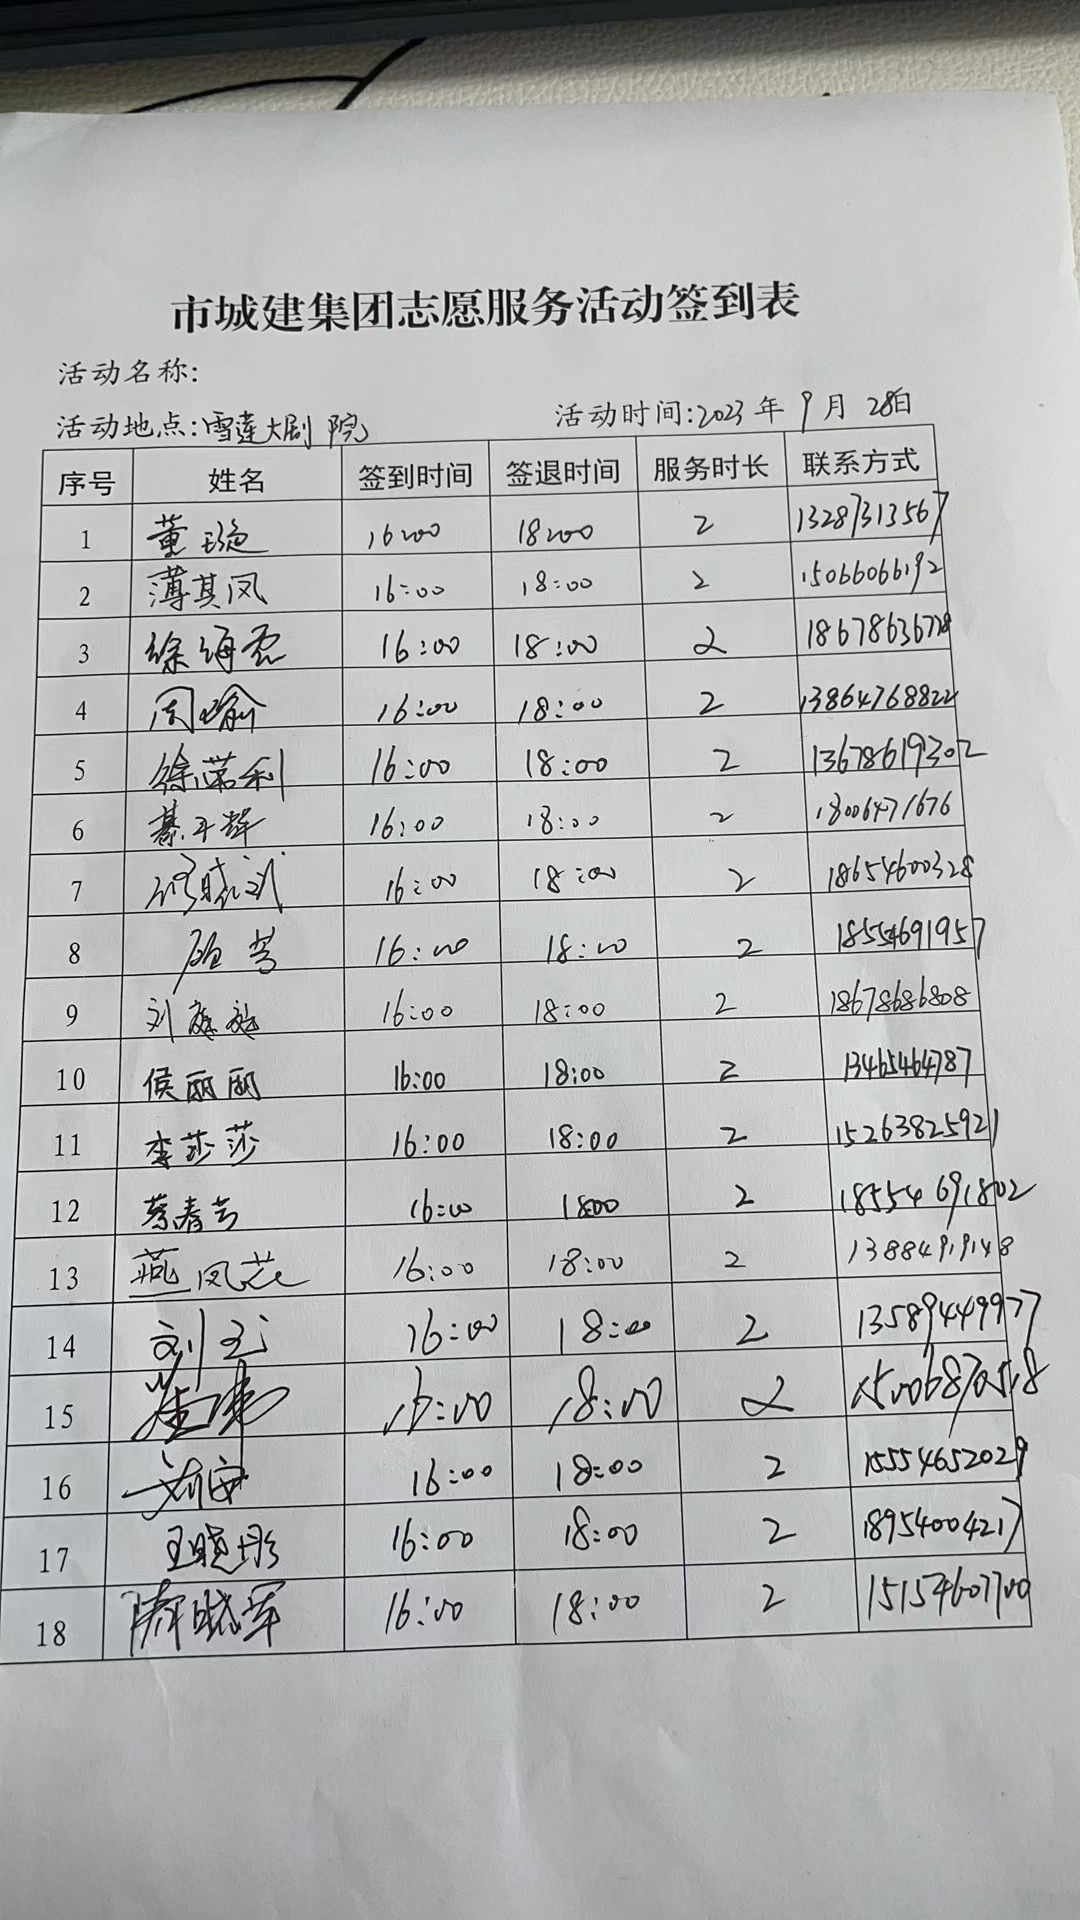 市城建集团志愿服务活动签到表
活动名称:
活动地点:雪莲大剧院 活动时间:2023年9月28日
序号 姓名 签到时间 签退时间 服务时长 联系方式
1 董璇 16:00 18:00 2 13287313567
2 薄其凤 16:00 18:00 2 15066066192
3 徐海霞 16:00 18:00 2 18678636728
4 周瑜 16:00 18:00 2 13864768822
5 徐荣利 16:00 18:00 2 13678619302
6 16:00 18:00 2 18006471676
7 16:00 18:00 2 18654600328
8 16:00 18:00 2 18554691957
9 刘 16:00 18:00 2 18678686808
10 侯丽丽 16:00 18:00 2 13465464787
11 李莎莎 16:00 18:00 2 15263825921
12 蔡春芳 16:00 1800 2 18554691802
13 燕凤花 16:00 18:00 2 13884919148
14 刘 16:00 18:00 2 13589449977
15 16:00 18:00 2 15006870518
16 16:00 18:00 2 15554652029
17 王晓彤 16:00 18:00 2 18954004217
18 隋晓军 16:00 18:00 2 15154607700